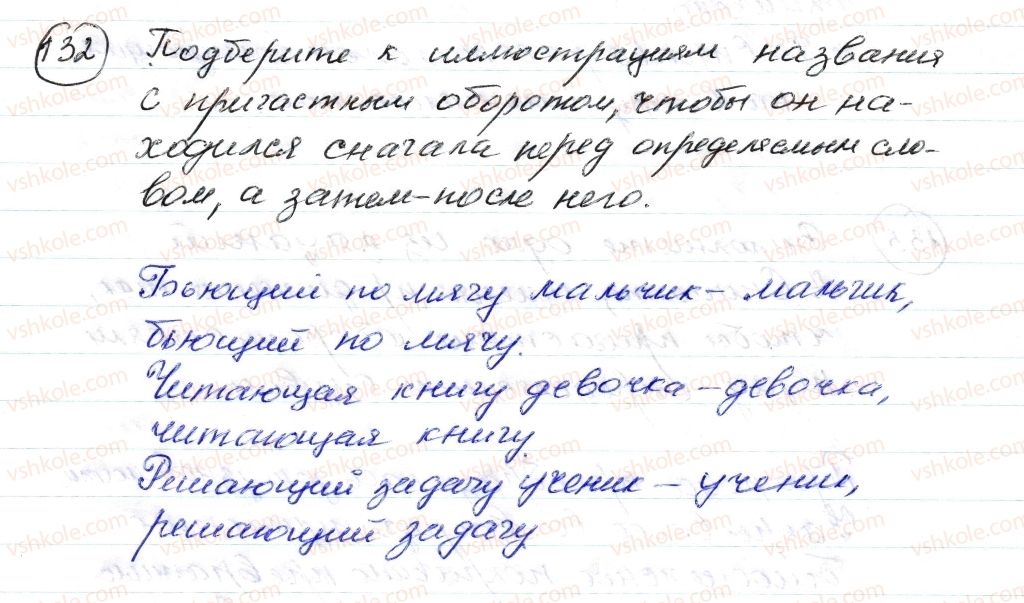 132 Подберите к иллюстрациям названия
с причастным оборотом, чтобы он на-
ходился сначала перед определяемым сло-
вом, а затем – после него.
Бьющий по мячу мальчик – мальчик,
бьющий по мячу.
Читающая книгу девочка – девочка,
читающая книгу.
Решающий задачу ученик – ученик,
решающий задачу